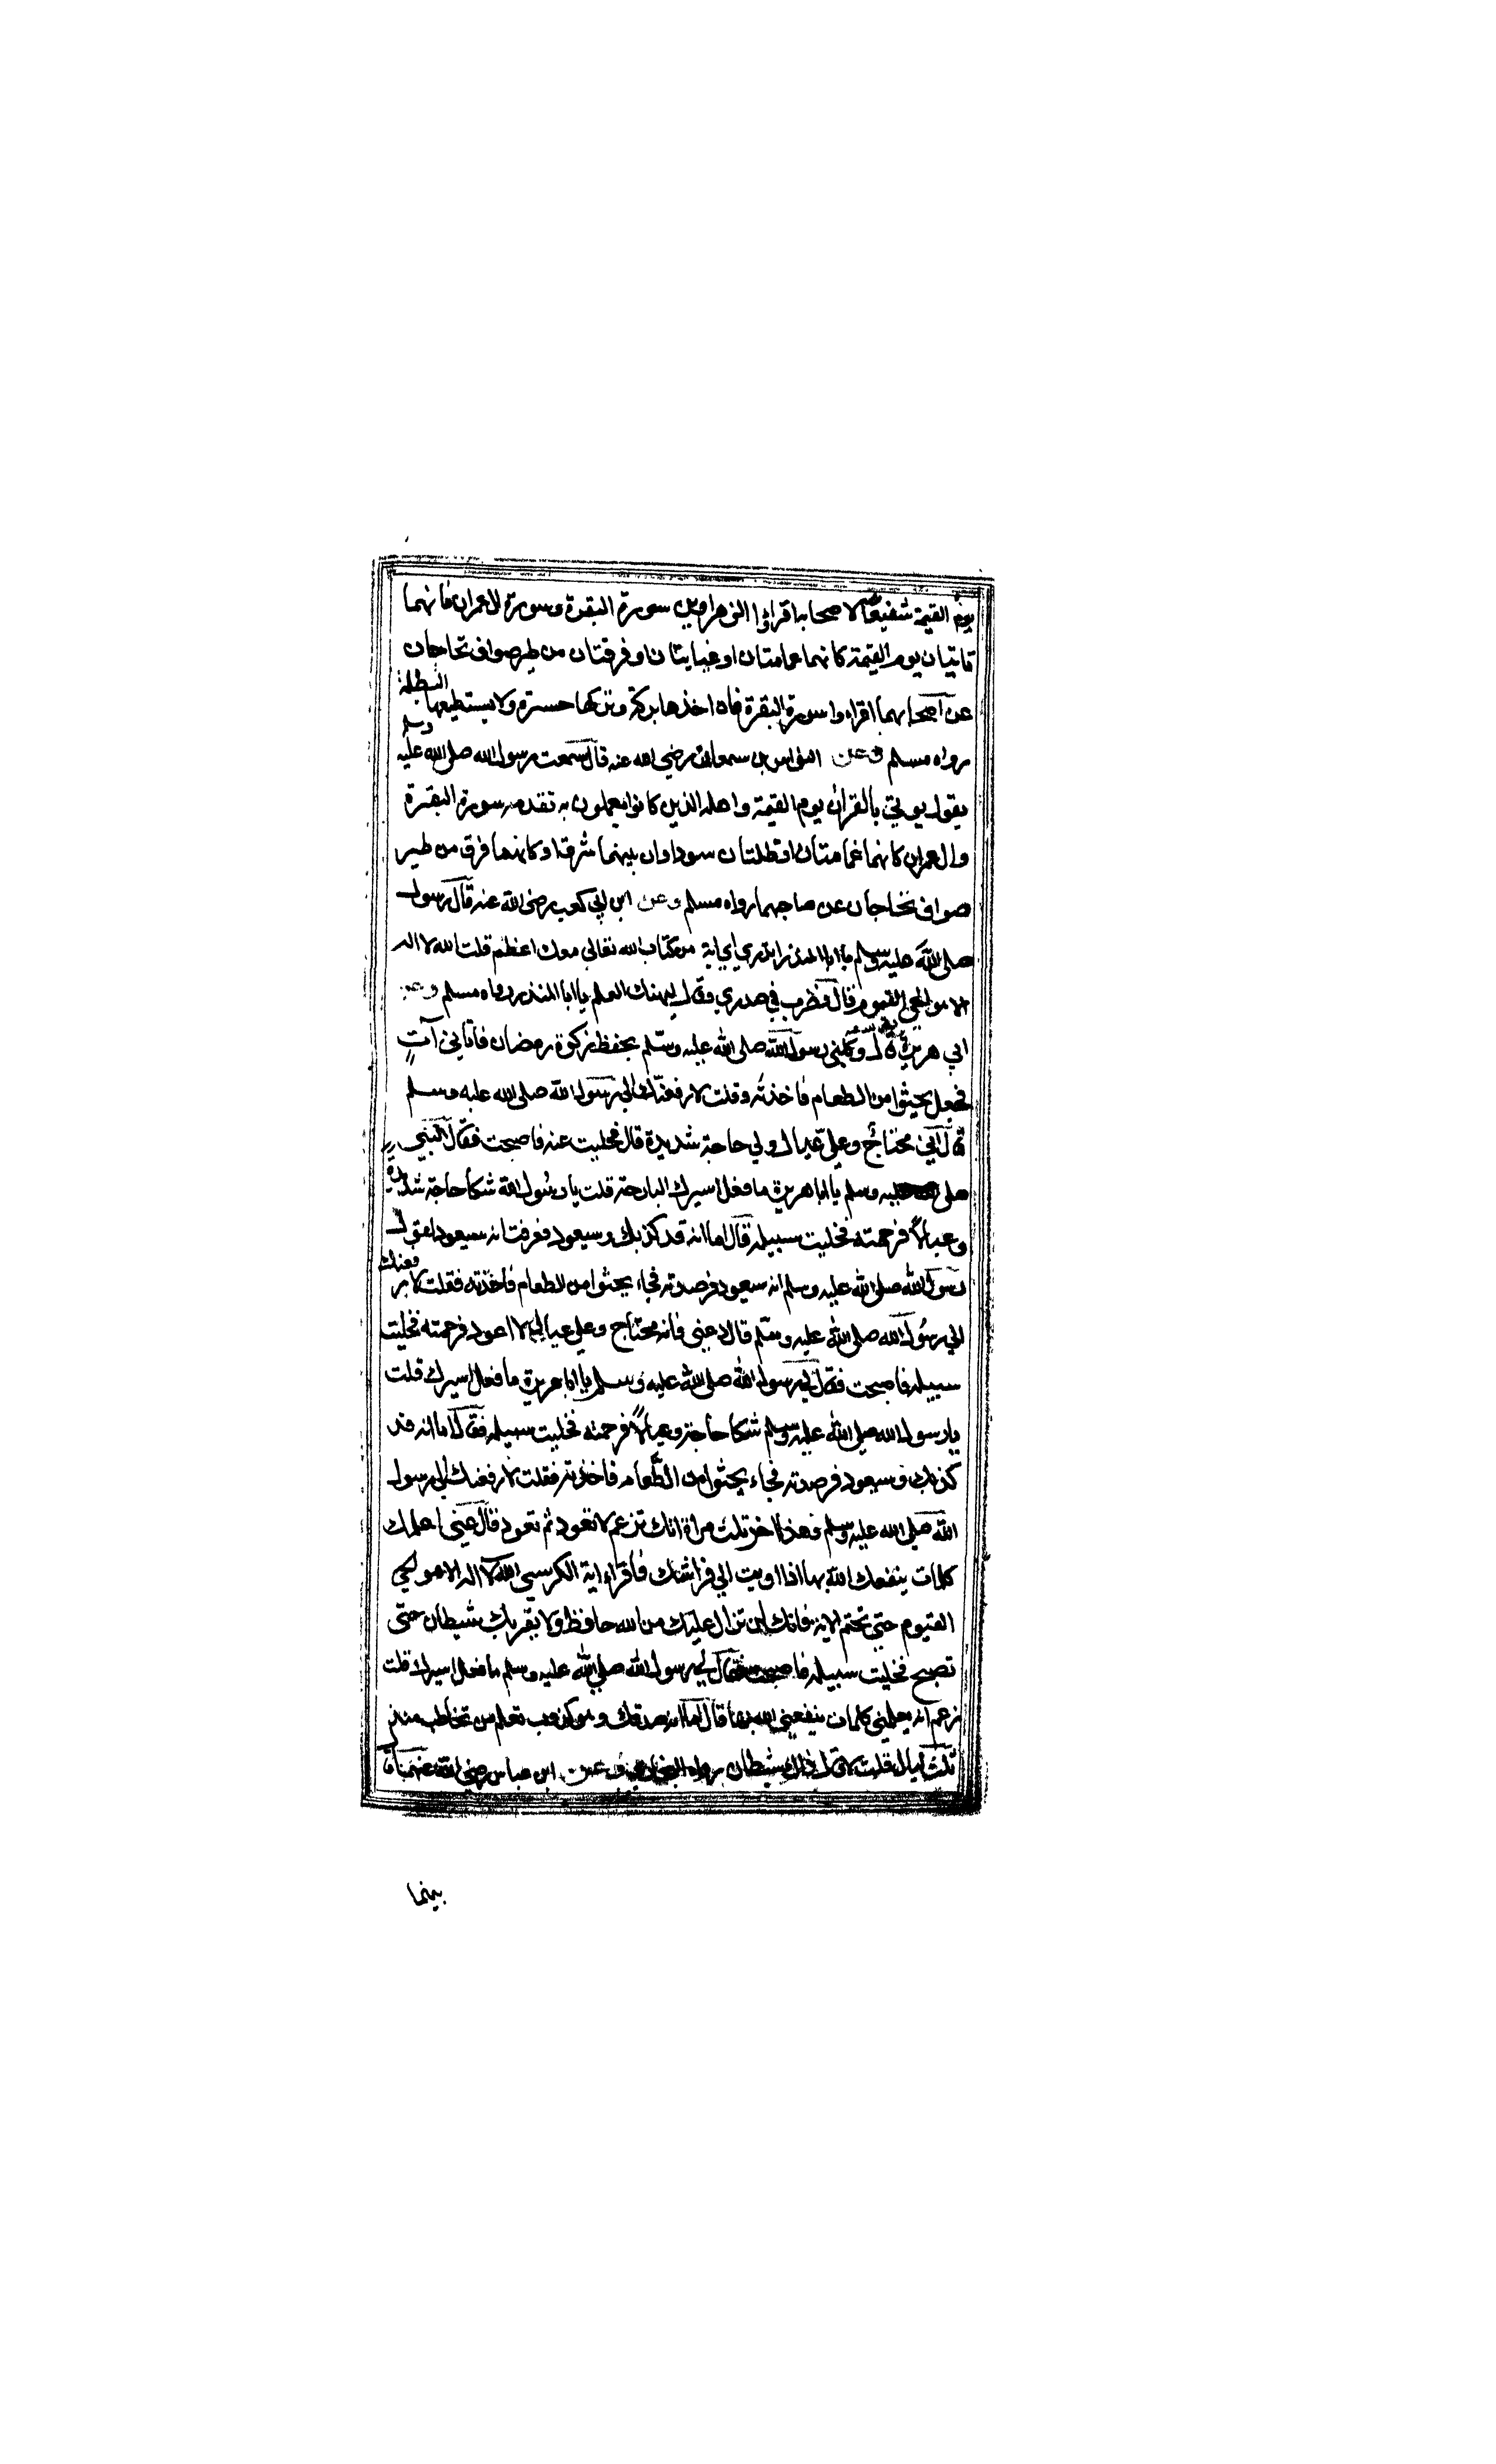 يوم القيمة شفيعا لاصحابه اقراوا الزهراوين سورة البقرة وسورة ال عمران فانهما
تاتيان يوم القيمة كانهما غمامتان او غيايتان او فرقتان من طير صواف تحاجان
عن اصحابهما اقراوا سورة البقرة فان اخذها بركة وتركها حسرة ولا يستطيعها البطلة
رواه مسلم وعن النواس بن سمعان رضي الله عنه قال سمعت رسول الله صلى الله عليه وسلم
يقول يوتي بالقرأن يوم القيمة واهله الذين كانوا يعملون به تقدمه سورة البقرة
وال عمران كانهما غمامتان او ظلتان سوداوان بينهما شرق او كانهما فرق من طير
صواف تحاجان عن صاحبهما رواه مسلم وعن ابن ابي كعب رضي الله عنه قال رسول
صلى الله عليه وسلم يا ابا المنذر اتدري اي اية من كتاب الله تعالي معك اعظم قلت الله لا اله
الا هو الحي القيوم قال فضرب في صدري وقال ليهنك العلم يا ابا المنذر رواه مسلم وعن
ابي هريرة قال وكلني رسول الله صلى الله عليه وسلم بحفظ زكوة رمضان فاتاني آتٍ
فجعل يحثوا من الطعام فاخذته وقلت لارفعنك الي رسول الله صلى الله عليه وسلم
قال اني محتاج وعلي عيال ولي حاجة شديدة قال فخليت عنه فاصبحت فقال النبي
صلى عليه وسلم يا ابا هريرة ما فعل اسيرك البارحة قلت يا رسول الله شكا حاجة شديدة
وعيالا فرحمته فخليت سبيله قال اما انه قد كذبك وسيعود فعرفت انه سيعود لقول
رسول الله صلى الله عليه وسلم انه سيعود فرصدته فجاء يحثوا من الطعام فاخذته فقلت لارفعنك
الي رسول الله صلى الله عليه وسلم قال دعني فانه محتاج وعلي عيال لا اعود فرحمته فخليت
سبيله فاصبحت فقال لي رسول الله صلى الله عليه وسلم يا ابا هريرة ما فعل اسيرك قلت
يا رسول الله صلي الله عليه وسلم شكا حاجة وعيالا فرحمته فخليت سبيله فقال اما انه قد
كذبك وسيعود فرصدته فجاء يحثوا من الطعام فاخذته فقلت لارفعنك الي رسول
الله صلي الله عليه وسلم وهذا اخر ثلث مراة انك تزعم لا تعود ثم تعود قال دعني اعلمك
كلمات ينفعك الله بها اذا اويت الي فراشك فاقراء اية الكرسي الله لا اله الا هو الحي
القيوم حتي تختم الاية فانك لن تزال عليك من الله حافظ ولا يقربك شيطان حتى
تصبح فخليت سبيله فاصبحت فقال لي رسول الله صلي الله عليه وسلم ما فعل اسيرك قلت
زعم انه يعلمني كلمات ينفعني الله بها قال اما انه صدقك وهو كذوب تعلم من تخاطب منذ
ثلث ليال قلت لا قال ذاك شيطان رواه البخاري وعن ابن عباس رضي الله عنهما قال
بينما